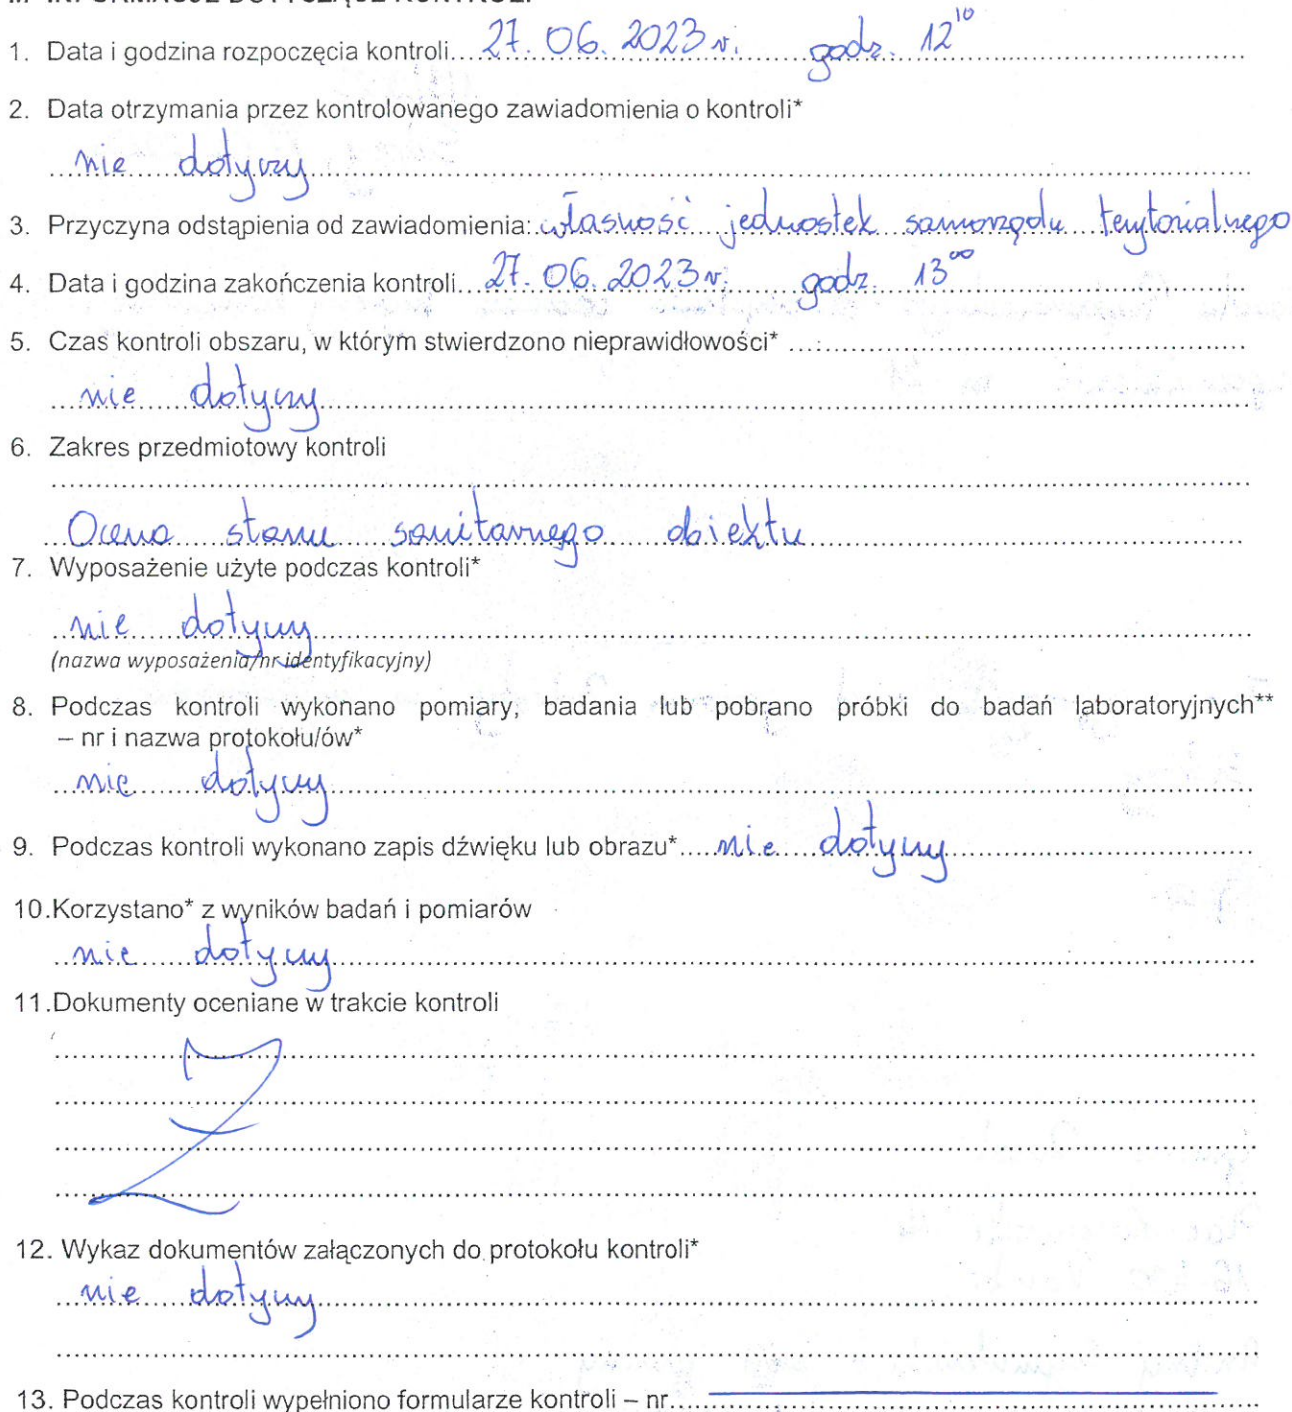 II. INFORMACJE DOTYCZĄCE KONTROLI
1. Data i godzina rozpoczęcia kontroli...27.06.2023 r. godz. 12¹⁰
2. Data otrzymania przez kontrolowanego zawiadomienia o kontroli*
nie dotyczy
3. Przyczyna odstąpienia od zawiadomienia: własność jednostek samorządu terytorialnego
4. Data i godzina zakończenia kontroli...27.06.2023 r. godz. 13⁰⁰
5. Czas kontroli obszaru, w którym stwierdzono nieprawidłowości* ...
nie dotyczy
6. Zakres przedmiotowy kontroli
Ocena stanu sanitarnego obiektu
7. Wyposażenie użyte podczas kontroli*
nie dotyczy
(nazwa wyposażenia/nr identyfikacyjny)
8. Podczas kontroli wykonano pomiary, badania lub pobrano próbki do badań laboratoryjnych**
– nr i nazwa protokołu/ów*
nie dotyczy
9. Podczas kontroli wykonano zapis dźwięku lub obrazu*....nie dotyczy
10.Korzystano* z wyników badań i pomiarów
nie dotyczy
11.Dokumenty oceniane w trakcie kontroli
12. Wykaz dokumentów załączonych do protokołu kontroli*
nie dotyczy
13. Podczas kontroli wypełniono formularze kontroli – nr....